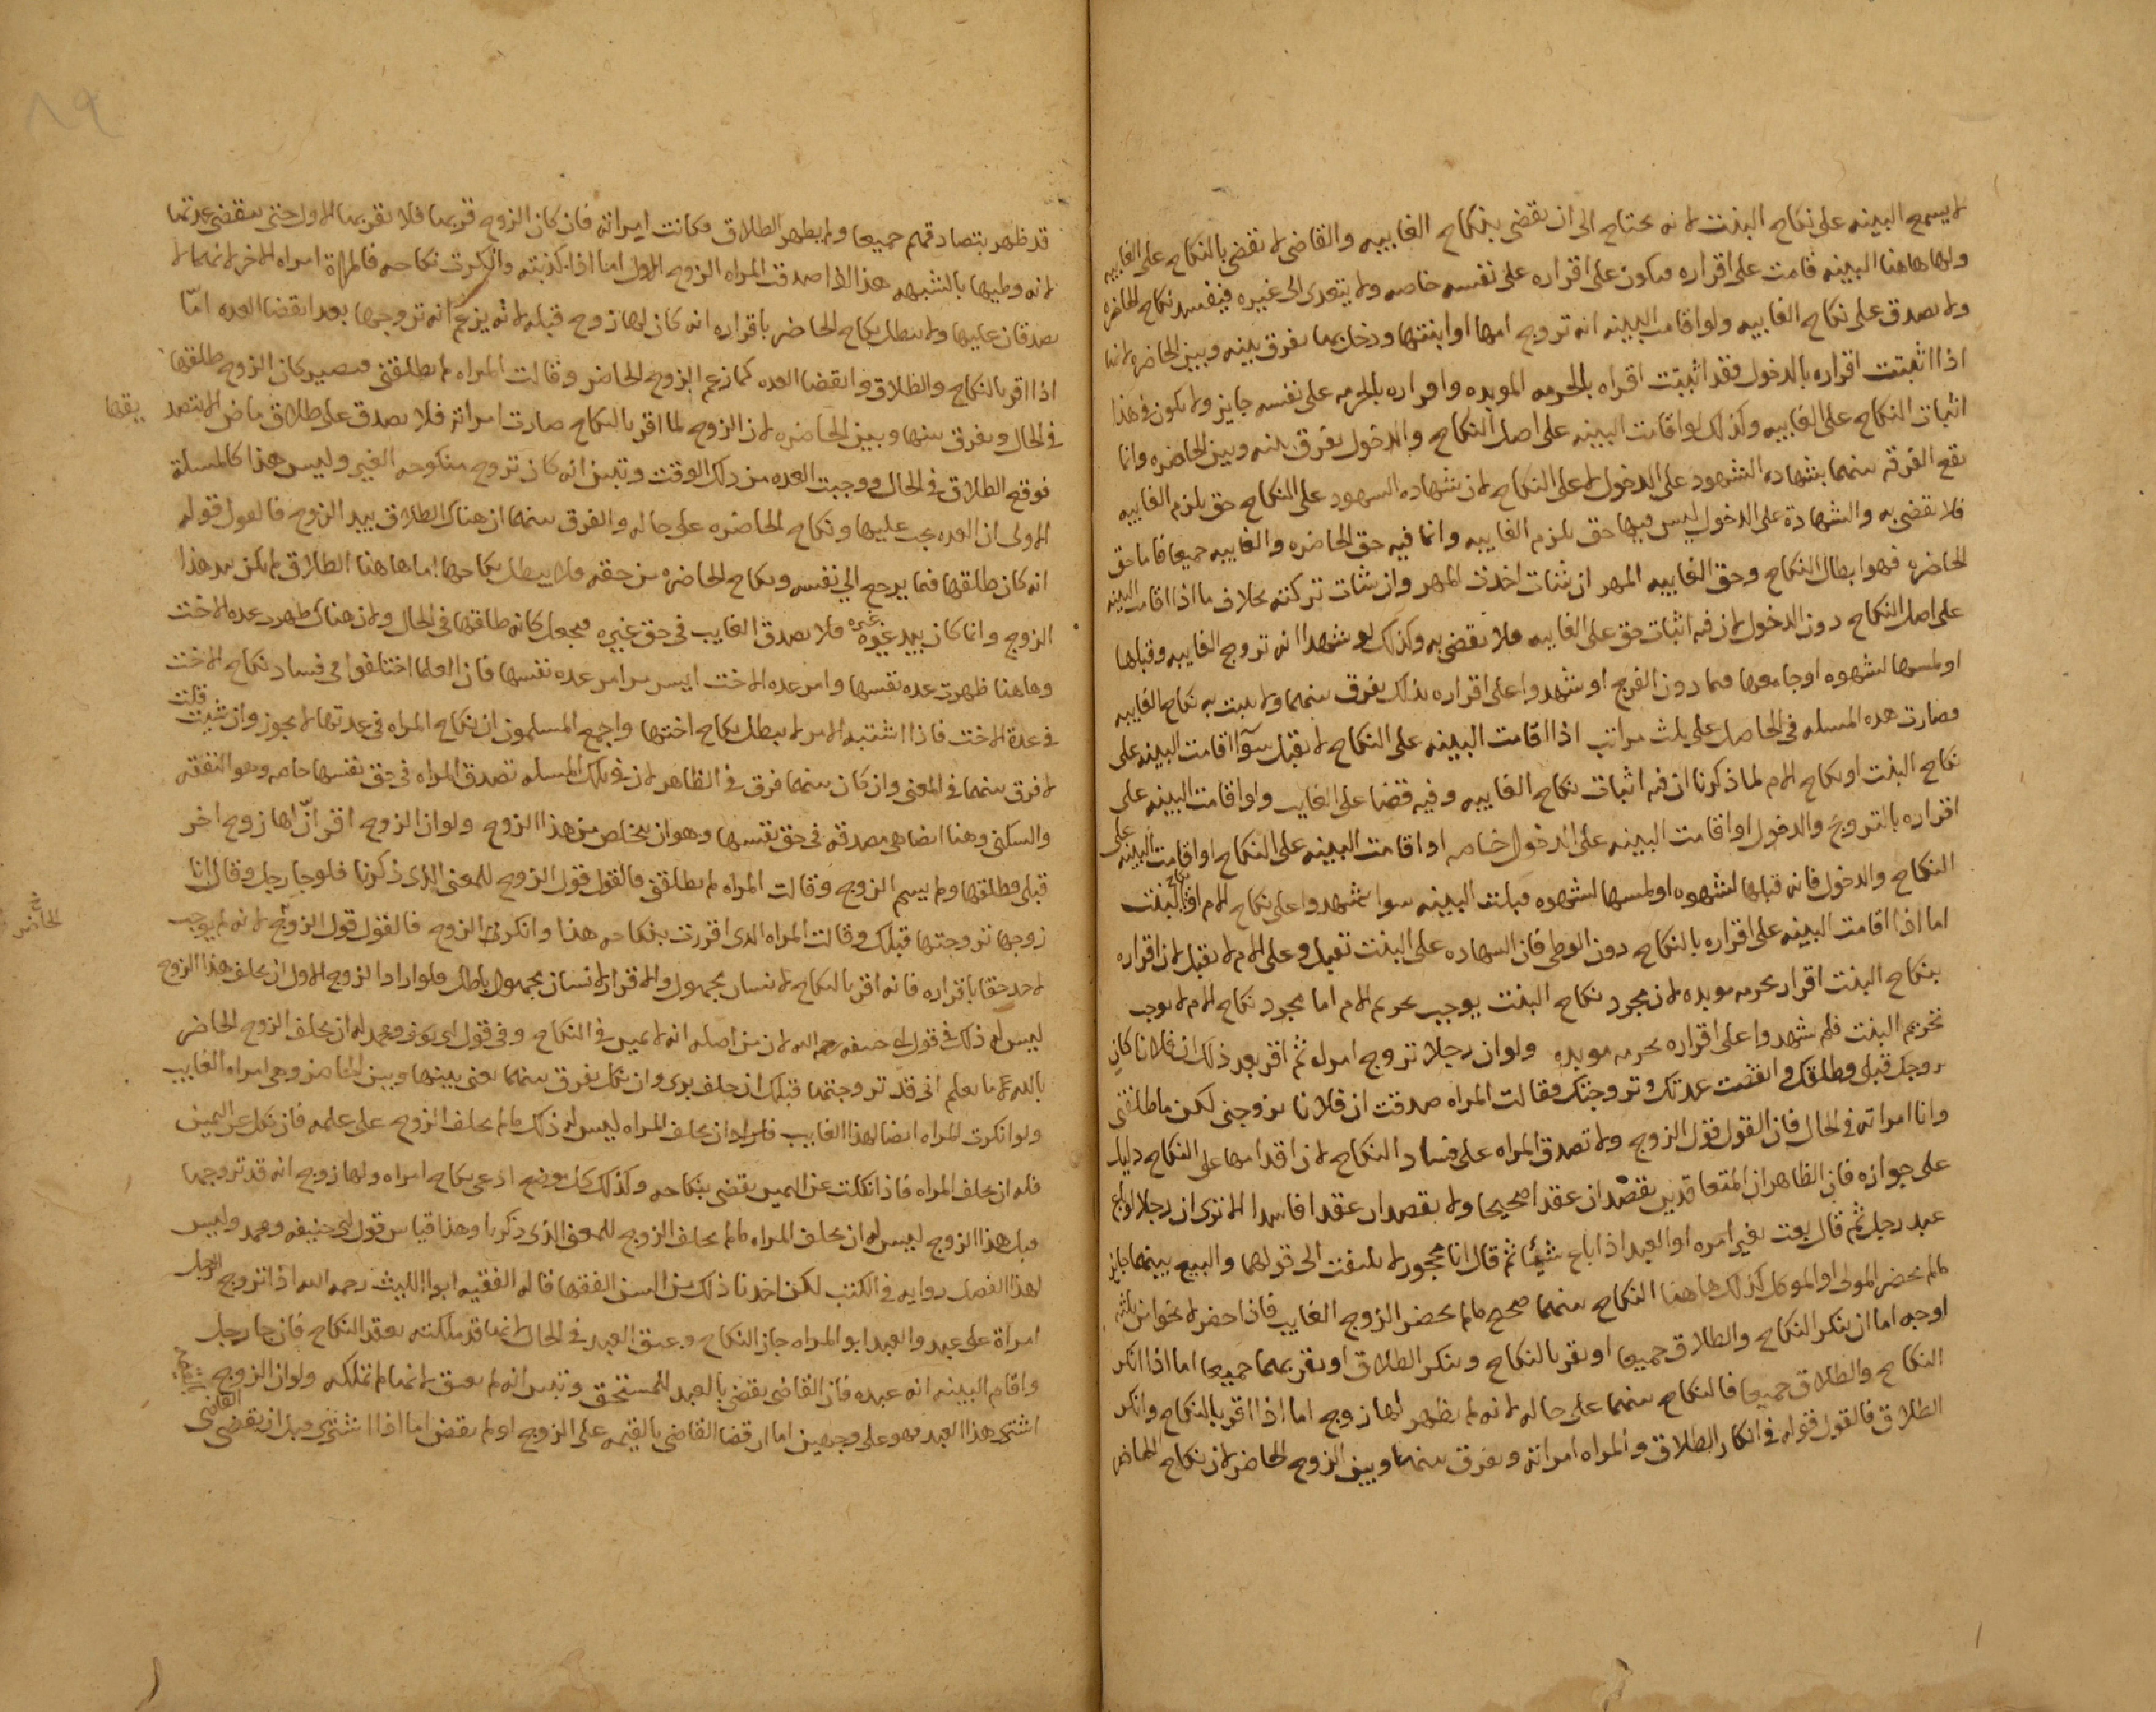 لا يسمع البينه على نكاح البنت لانه يحتاج الى ان يقضى بنكاح الغايبه والقاضى لا يقضى بالنكاح على الغايبه
ولها هاهنا البينه قامت على اقراره فيكون على اقراره على نفسه خاصه ولا يتعدى الى غيره فيفسد نكاح الحاضره
ولا يصدق على نكاح الغايبه ولو اقامت البينه انه تزوج امها او ابنتها ودخل بها يفرق بينه وبين الحاضره لانها
اذا اثبتت اقراره بالدخول فقد اثبتت اقراه بالحرمه الموبده واقراره بالحرمه على نفسه جايز ولا يكون في هذا
اثبات النكاح على الغايبه وكذلك لو اقامت البينه على اصل النكاح والدخول يفرق بينه وبين الحاضره وانما
يقع الفرقه بينهما بشهاده الشهود على الدخول لا على النكاح لان شهاده الشهود على النكاح حق يلزم الغايبه
فلا يقضى به والشهادة على الدخول ليس فيها حق يلزم الغايبه وانما فيه حق الحاضره والغايبه جميعا فاما حق
الحاضره فهو ابطال النكاح وحق الغايبه المهر ان شات اخذت المهر وان شات تركته بخلاف ما اذا اقامت البينه
على اصل النكاح دون الدخول لان فيه اثبات حق على الغايبه فلا يقضى به وكذلك لو شهدا انه تزوج الغايبه وقبلها
او لمسها لشهوه او جامعها فيما دون الفرج او شهدوا على اقراره بذلك يفرق بينهما ولا يثبت به نكاح الغايبه
فصارت هذه المسله في الحاصل على ثلث مراتب اذا اقامت البينه على النكاح لا تقبل سوآ اقامت البينه على
نكاح البنت او نكاح الام لما ذكرنا ان فيه اثبات نكاح الغايبه وفيه قضا على الغايب ولو اقامت البينه على
اقراره بالتزويج والدخول او اقامت البينه على الدخول خاصه او اقامت البينه على النكاح او اقامت البينه على
النكاح والدخول فانه قبلها لشهوه او لمسها لشهوه قبلت البينه سوا شهدوا على نكاح الام او نكاح البنت
اما اذا اقامت البينه على اقراره بالنكاح دون الوطى فان الشهاده على البنت تقبل وعلى الام لا تقبل لان اقراره
بنكاح البنت اقرار بحرمه موبده لان مجرد نكاح البنت يوجب تحريم الام اما مجرد نكاح الام لا يوجب
تحريم البنت فلم شهدوا على اقراره بحرمه موبده ولو ان رجلا تزوج امراه ثم اقر بعد ذلك ان فلانا كان
زوجك قبلى وطلقك وانقضت عدتك وتزوجتك فقالت المراه صدقت ان فلانا تزوجنى لكن ما طلقنى
وانا امراته في الحال فان القول قول الزوج ولا تصدق المراه على فساد النكاح لان اقدامها على النكاح دليل
على جوازه فان الظاهر ان المتعاقدين يقصدان عقدا صحيحا ولا يقصدان عقدا فاسدا الا ترى ان رجلا لو باع
عبد رجل ثم قال بعت بغير امره او العبد اذا باع شيئا ثم قال انا محجور لا يلتفت الى قولهما والبيع بينهما جايز
مالم يحضر المولى او الموكل كذلك هاهنا النكاح بينهما صحيح مالم يحضر الزوج الغايب فاذا حضر لا يخوا من ثلثه
اوجه اما ان ينكر النكاح والطلاق جميعا او يقر بالنكاح وينكر الطلاق او يقر بهما جميعا اما اذا انكر
النكاح والطلاق جميعا فالنكاح بينهما على حاله لانه لم يظهر لها زوج اما اذا اقر بالنكاح وانكر
الطلاق فالقول قوله في انكار الطلاق والمراه امراته ويفرق بينها وبين الزوج الحاضر لان نكاح الحاضر
٨٩
قد ظهر بتصادقهم جميعا ولم يظهر الطلاق فكانت امراته فان كان الزوج قربها فلا يقربها الاول حتى تنقضى عدتها
لانه وطيها بالشبهه هذا اذا صدقت المراه الزوج الاول اما اذا كذبته وانكرت نكاحه فالمراة امراه الاخر لانهما لا
يصدقان عليها ولا يبطل نكاح الحاضر باقراره انه كان لها زوج قبله لانه يزعم انه تزوجها بعد انقضا العده امّا
اذا اقر بالنكاح والطلاق وانقضا العده كما زعم الزوج الحاضر وقالت المراه لم يطلقنى فيصير كان الزوج طلقها
في الحال ويفرق بينها وبين الحاضره لان الزوج لما اقر بالنكاح صارت امراته فلا يصدق على طلاق ماض الا بتصديقها
فوقع الطلاق في الحال ووجبت العده من ذلك الوقت وتبين انه كان تزوج منكوحه الغير وليس هذا كالمسلة
الاولى ان العده يجب عليها ونكاح الحاضره على حاله والفرق بينهما ان هناك الطلاق بيد الزوج فالقول قوله
انه كان طلقها فيما يرجع الي نفسه ونكاح الحاضره من حقه فلا يبطل نكاحها اما هاهنا الطلاق لم يكن بيد هذا
الزوج وانما كان بيد غيره فلا يصدق الغايب في حق غيره فيجعل كانه طلقها في الحال ولان هناك ظهرت عده الاخت
وهاهنا ظهرت عده نفسها وامر عده الاخت ايسر من امر عده نفسها فان العلما اختلفوا في فساد نكاح الاخت
في عدة الاخت فاذا اشتبه الامر لا يبطل نكاح اختها واجمع المسلمون ان نكاح المراه في عدتها لا يجوز وان شيت قلت
لا فرق بينهما في المعنى وان كان بينهما فرق في الظاهر لان في تلك المسله تصدق المراه في حق نفسها خاصه وهو النفقه
والسكنى وهنا ايضا هى مصدقه في حق نفسها وهو ان يتخلص من هذا الزوج ولو ان الزوج اقر انّ لها زوج اخر
قبلى وطلقها ولم يسم الزوج وقالت المراه لم يطلقنى فالقول قول الزوج للمعنى الذى ذكرنا فلو جا رجل وقال انا
زوجها تزوجتها قبلك وقالت المراه الذى اقررت بنكاحه هذا وانكر الزوج فالقول قول الزوج الحاضر لانه لم يوجب
لاحد حقا باقراره فانه اقر بالنكاح لانسان مجهول والاقرار لانسان مجهول باطل فلو اراد الزوج الاول ان يحلف هذا الزوج
ليس له ذلك في قول ابى حنيفه رحمه الله لان من اصله انه لا يمين في النكاح وفي قول ابى يوسف ومحمد له ان يحلف الزوج الحاضر
بالله ما يعلم انى قد تزوجتها قبلك ان حلف برى وان نكل يفرق بينهما يعنى بينها وبين الحاضر وهى امراه الغايب
ولو انكرت المراه ايضا لهذا الغايب فاراد ان يحلف المراه ليس له ذلك مالم يحلف الزوج على علمه فان نكل عن اليمين
فله ان يحلف المراه فاذا نكلت عن اليمين يقضى بنكاحه وكذلك كل موضع ادعى نكاح امراه ولها زوج انه قد تزوجها
قبل هذا الزوج ليس له ان يحلف المراه مالم يحلف الزوج للمعنى الذى ذكرنا وهذا قياس قول ابى حنيفه ومحمد وليس
لهذا الفصل روايه في الكتب لكن اخذنا ذلك من السن الفقها قال الفقيه ابو الليث رحمه الله اذا تزوج الرجل
امراة على عبد والعبد ابو المراه جاز النكاح وعتق العبد في الحال لانها قد ملكته بعقد النكاح فان جا رجل
واقام البينه انه عبده فان القاضى يقضى بالعبد للمستحق وتبين انه لم يعتق لانها لم تملكه ولو ان الزوج
اشترى هذا العبد فهو على وجهين اما ان قضا القاضى بالقيمه على الزوج او لم يقض اما اذا اشترى قبل ان يقضى القاضى